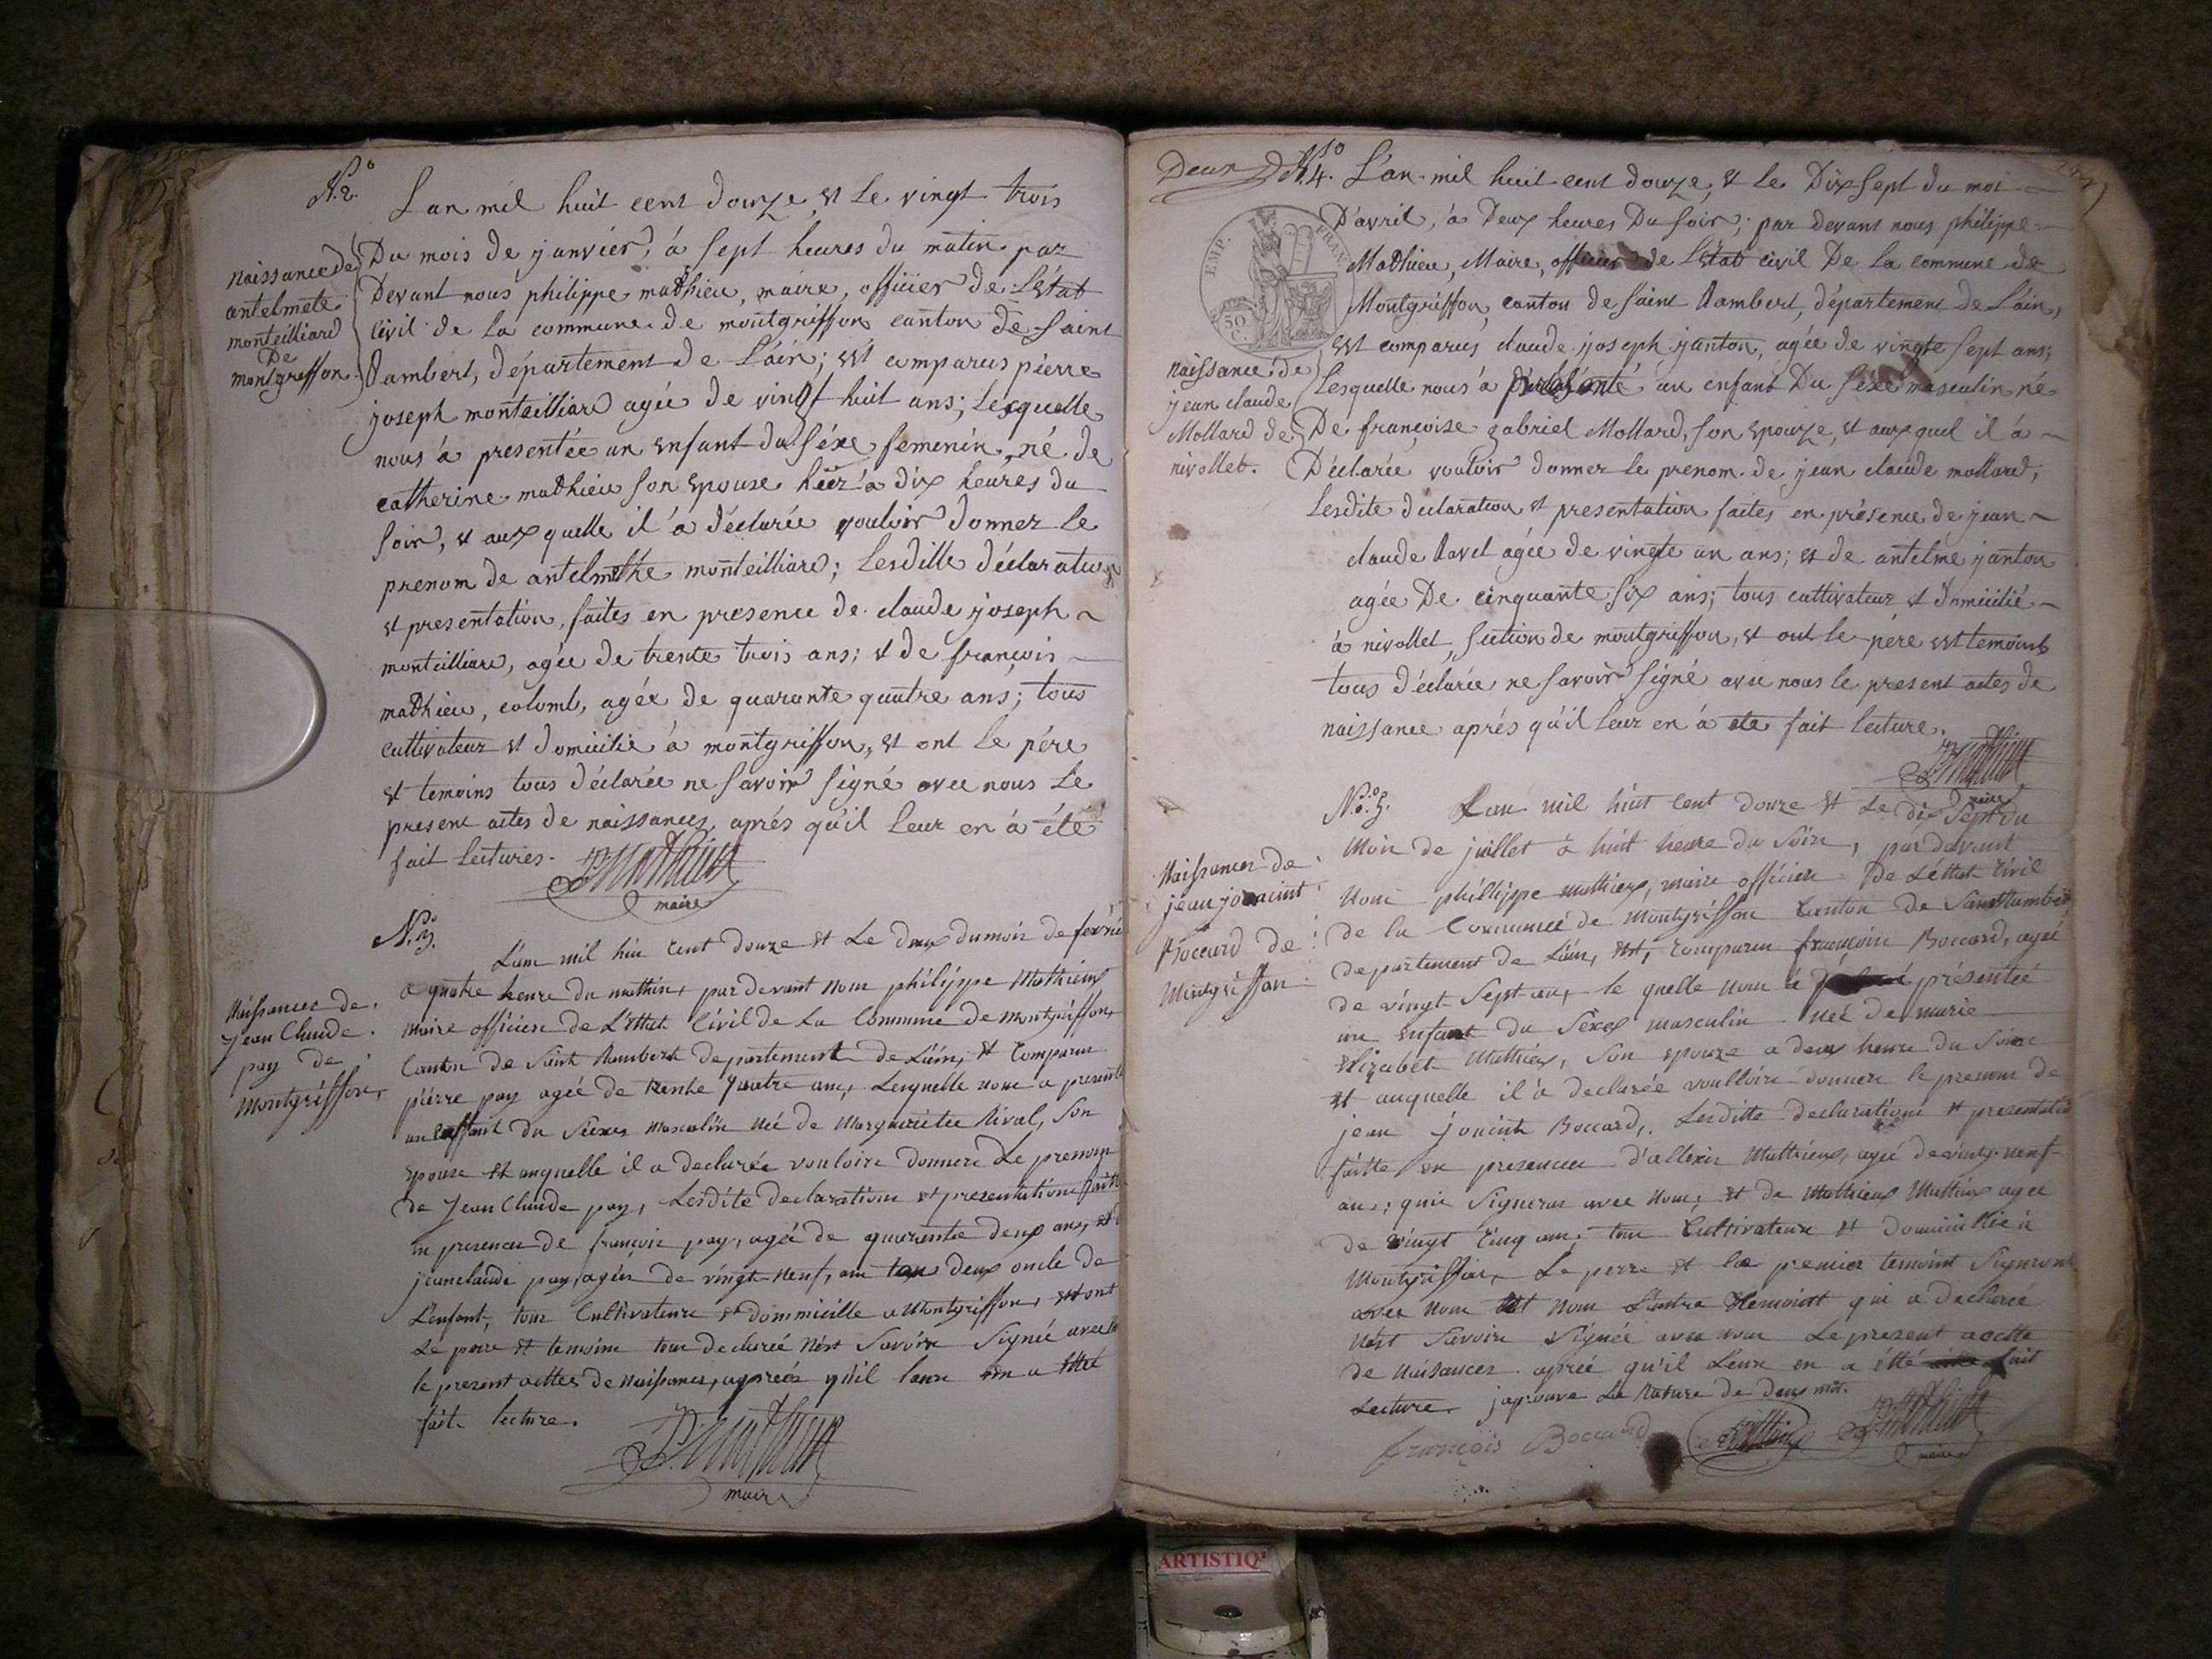 N.° 2.
L'an mil huit cent douze, et le vingt trois
Du mois de janvier, à sept heures du matin par
Devant nous philippe mathieu, maire, officier de l'état
Civil de la commune de montgriffon canton de saint
Rambert, département de l'ain; est comparus pierre
joseph monteilliard agée de vingt huit ans; lesquelle
nous à presentée un enfant du séxe femenin, né de
catherine mathieu son epouse hier à dix heures du
soir, et aux quelle il à déclarée vouloir donner le
prenom de antelmethe monteilliard; lesditte déclaration
et presentation, faites en presence de claude joseph
monteilliard, agée de trente trois ans; et de françois
mathieu, colomb, agée de quarante quatre ans; tous
cultivateur et domicilié à montgriffon, et ont le pére
et temoins tous déclarée ne savoir signé avec nous le
present actes de naissances, aprés qu'il leur en à été
fait lectures.
P mathieu
maire
naissance de
antelmete
monteilliard
De
montgriffon
N.° 3.
L'an mil hui cent douze et le deux du mois de fevrie
a quatre heure du mathin, par devant nous philippe Mathieux
maire officier de L'ettat Civil de La Commune de montgriffon,
Canton de Saint Rambert departement de L'ain, et Comparu
pierre pay agée de trente quatre ans, Lesquelle nous a presenté
un enffant du Sexes masculin né de Margueritee Rival, Son
epouse et auquelle il a declarée vouloire donnere Le prenom
de Jean Claude pay, Lesdite declarations et presentations faitte
en presence de françois pay, agé de quarante deux ans, et
jean claude pay, agée de vingt-neuf, ans tou deux oncle de
L'enfant, tous Cultivateure et dommicille a Montgriffon, et ont
Le pere et temoins tous declaree n'est Savoire Signée avec
le present acttes de naissances, aprés qu'il leur en a etté
fait lecture.
P. mathieu
maire
Naissances de
Jean Claude
pay de
Montgriffon
Deux
N.° 4. L'an mil huit cent douze, et le Dix sept du moi
D'avril, à Deux heures Du soir; par devant nous philippe
Mathieu, Maire, officier de l'état civil De la commune de
Montgriffon, canton de saint Rambert, département de L'ain,
est comparus claude joseph janton, agée de vingte sept ans;
lesquelle nous à présenté un enfant Du séxe masculin né
De françoise gabriel Mollard, son epouze, et aux quel il à
Déclarée vouloir donner le prenom de jean claude mollard,
lesdite déclaration et presentation faites, en présence de jean
claude Ravet agée de vingte un ans; et de antelme janton
agée De cinquante six ans; tous cultivateur et domicilié
à nivollet, section de montgriffon, et ont le pére est temoins
tous déclarée ne savoir signé avec nous le present actes de
naissance aprés qu'il leur en à ete fait lecture.
P mathieu
maire
EMP. FRAN.
50 C.
naissance de
jean claude
Mollard de
nivollet.
N.° 5. L'an mil huit Cent douze et Le dix Sept du
Mois de juillet à huit heure du Soire, par devant
Nous phillippe mathieux, maire officier De L'ettat Civil
de la Commune de Montgriffon Canton de Saint Rambert
departement de L'ain, est, Comparu françois Boccard, agée
de vingt Sept ans, le quelle nous à présentée
un enfant du Séxes masculin née de marie
Elizabet Mathieux, Son epouze a deux heure du Soire
et auquelle il à declarée voulloire donnere le prenom de
jean joucint Boccard, Lesditte declarations et presentation
faitte en presences d'allexis Mathieux, agé de vingt-neuf
ans; quie Signeras avec nous; et de Mathieux Mathieux agee
de vingt cinq ans; tous Cultivateure et domicillie à
Montgriffon, Le perre et le premier temoint Signeront
avec nous et nom L'autre temointt qui a declarée
n'est Savoire Signée avec nous Le present actte
de Naisances aprée qu'il Leur en a étté fait
Lecture. japrouve La Rature de deux mot.
françois Boccard
P mathieu
maire
Naissances de
jean joucint
Boccard de
Montgriffon
ARTISTIQ